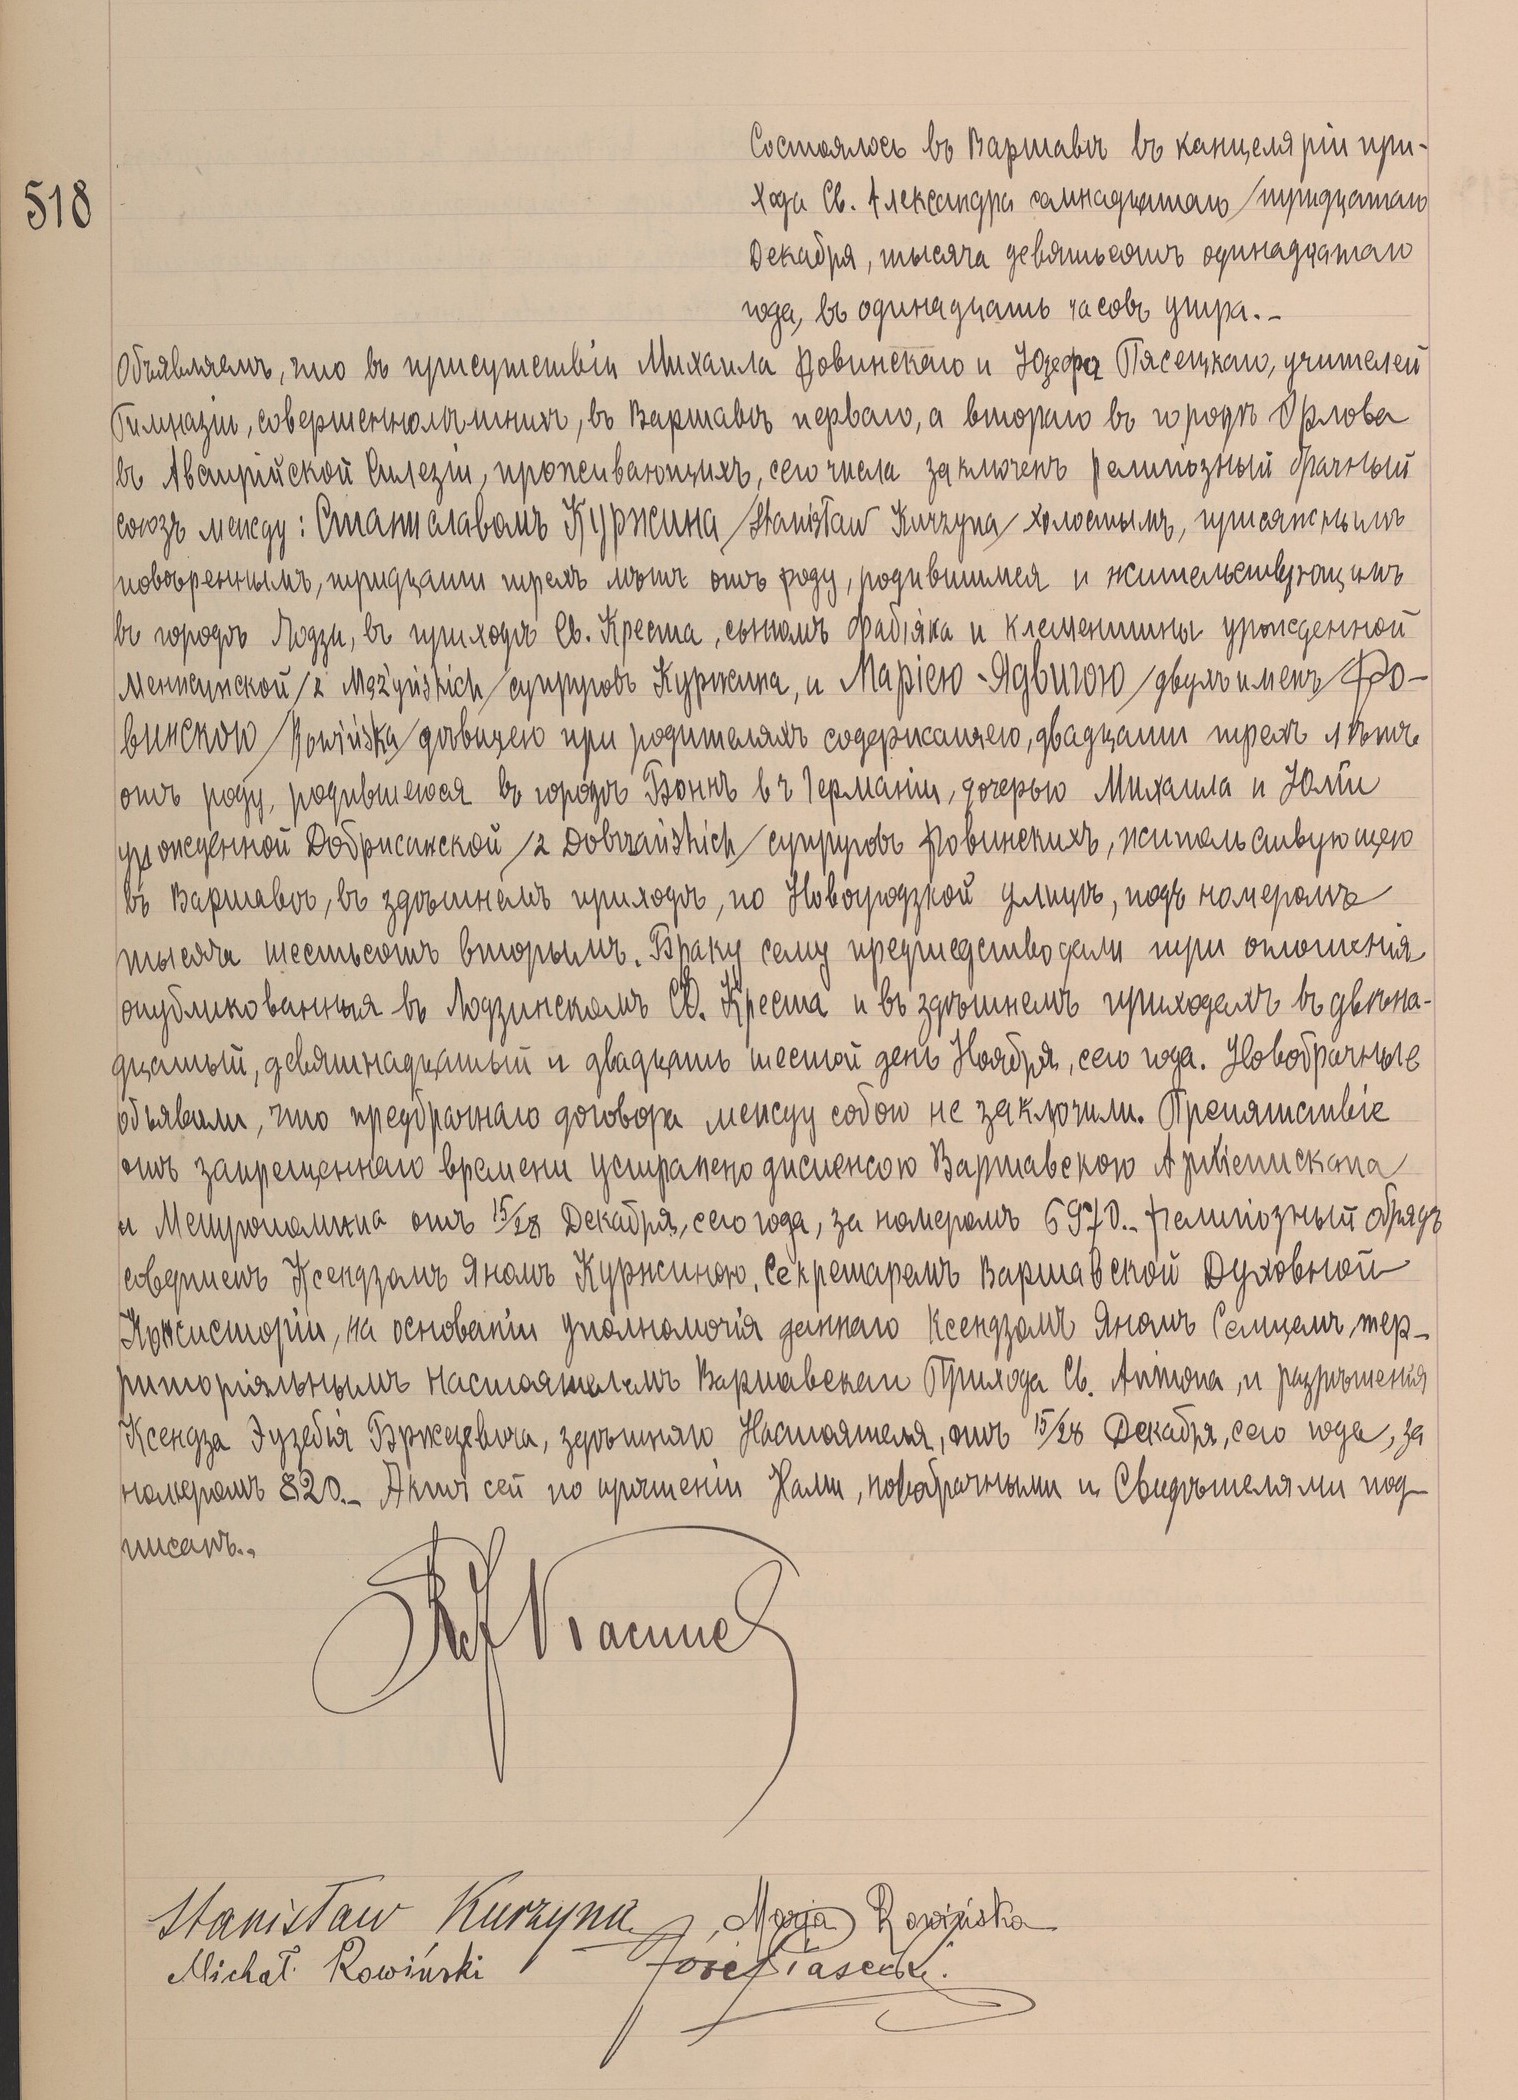 518
Состоялось въ Варшавѣ въ канцеляріи при-
хода Св. Александра семнадцатаго/тридцатаго
Декабря, тысяча девятьсотъ одинадцатаго
года, въ одинадцать часовъ утра.-
Объявляемъ, что въ присутствіи Михаила Ровинскаго и Юзефа Пясецкаго, учителей
Гимназіи, совершеннолѣтнихъ, въ Варшавѣ перваго, а втораго въ городѣ Орлова
въ Австрійской Силезіи, проживающихъ, сего числа заключенъ религіозный брачный
союзъ между: Станиславомъ Куржина /Stanisław Kurzyna/ холостымъ, присяжнымъ
повѣреннымъ, тридцати трехъ лѣтъ отъ роду, родившимся и жительствующимъ
въ городѣ Лодзи, въ приходѣ Св. Креста, сыномъ Фабіяна и Клементины урожденной
/z Mężyńskich/ супруговъ Куржина, и Маріею-Ядвигою /двухъ именъ/ Ро-
винскою /Rowińska/ дѣвицею при родителяхъ содержащеюся, двадцати трехъ лѣтъ
отъ роду, родившеюся въ городѣ Боннъ въ Германіи, дочерью Михаила и Юліи
урожденной Добржанской /z Dobrzańskich/ супруговъ Ровинскихъ, жительствующею
въ Варшавѣ, въ здѣшнемъ приходѣ, по Новогродзкой улицѣ, подъ номеромъ
тысяча шестьсотъ вторымъ. Браку сему предшедствовали три оглашенія
опубликованныя въ Лодзинскомъ Св. Креста и въ здѣшнемъ приходахъ въ двѣна-
дцатый, девятнадцатый и двадцать шестой день Ноября, сего года. Новобрачные
объявили, что предбрачнаго договора между собою не заключили. Препятствіе
отъ запрещеннаго времени устранено диспенсою Варшавскаго Архіепископа
и Митрополита отъ 15/28 Декабря, сего года, за номеромъ 6970.- Религіозный обрядъ
совершенъ Ксендзомъ Яномъ Куржиною, Секретаремъ Варшавской Духовной
Консисторіи, на основаніи уполномочія даннаго Ксендзомъ Яномъ тер-
риторіяльнымъ Настоятелемъ Варшавскаго Прихода Св. Антона, и разрѣшенія
Ксендза Эузебія Бржезевича, здѣшняго Настоятеля, отъ 15/28 Декабря, сего года, за
номеромъ 820.- Актъ сей по прочтеніи Нами, новобрачными и Свидѣтелями под-
писанъ..
Stanisław Kurzyna Marja Rowińska
Michał Rowiński Józef Piasecki.